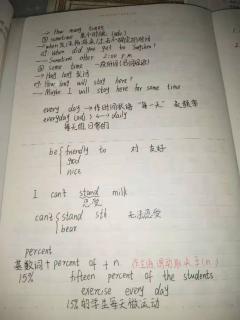 → How many times
② sometime 某个时候 (adv)
→ when
eg When did you get to
— Sometime after 2:00 p.m.
③ some time 一段时间
→ How long
eg How long will stay here?
— Maybe I will stay here for some time
every day → 作时间状语 "每一天"
everyday (adj) daily
每天的 日常的
be { friendly to 对 友好
good
nice
I can't stand milk
忍受
can't { stand sth 无法忍受
bear
percent
基数词 + percent of + n. 作主语 谓动取决于 (n)
15% fifteen percent of the students
exercise every day
15%的学生每天做运动